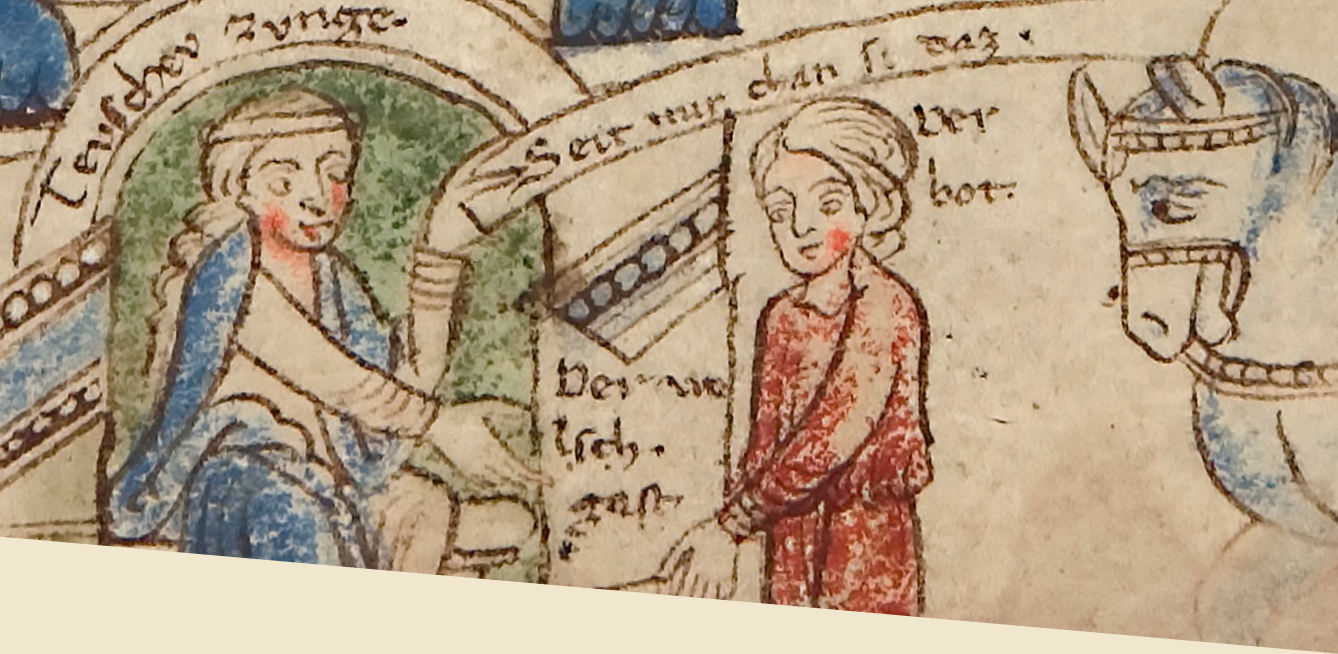 Teuscheu zunge.
Seit mir chan si daz.
Der
bot.
Der we
lsch.
gast